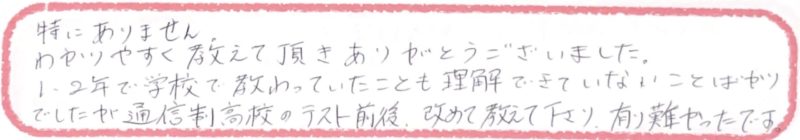 特にありません。
わかりやすく教えて頂きありがとうございました。
1、2年で学校で教わっていたことも理解できていないことばかり
でしたが通信制高校のテスト前後、改めて教えて下さり、有り難かったです。